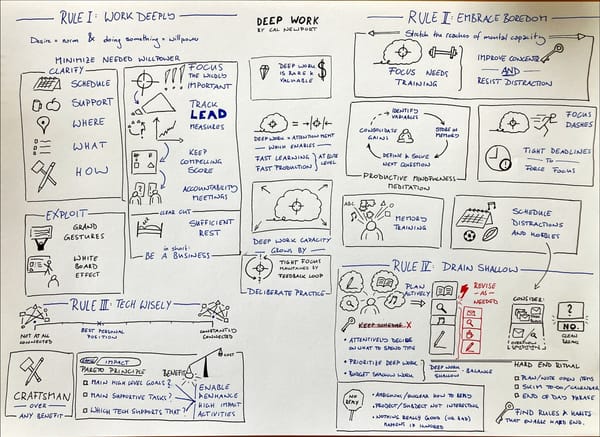 RULE I: WORK DEEPLY
Desire = norm & doing something = willpower
MINIMIZE NEEDED WILLPOWER
CLARITY
SCHEDULE
SUPPORT
WHERE
WHAT
HOW
EXPLOIT
GRAND
GESTURES
WHITE
BOARD
EFFECT
FOCUS
THE WILDLY
IMPORTANT
TRACK
LEAD
MEASURES
KEEP
COMPELLING
SCORE
ACCOUNTABILITY
MEETINGS
CLEAR CUT
SUFFICIENT
REST
in short:
BE A BUSINESS
DEEP WORK
BY CAL NEWPORT
DEEP WORK
IS RARE &
VALUABLE
$
DEEP WORK =
WHICH ENABLES
FAST LEARNING
FAST PRODUCTION
AT ELITE
LEVEL
DEEP WORK CAPACITY
GROWS BY
TIGHT FOCUS
MAINTAINED BY
FEEDBACK LOOP
DELIBERATE PRACTICE
RULE II: EMBRACE BOREDOM
Stretch the reaches of mental capacity
FOCUS NEEDS
TRAINING
IMPROVE CONCENTR.
AND
RESIST DISTRACTION
IDENTIFY
VARIABLES
STORE IN
MEMORY
DEFINE & SOLVE
NEXT QUESTION
CONSOLIDATE
GAINS
PRODUCTIVE MINDFULNESS
MEDITATION
FOCUS
DASHES
TIGHT DEADLINES
TO
FORCE FOCUS
ABC
MEMORY
TRAINING
SCHEDULE
DISTRACTIONS
AND HOBBIES
RULE III: TECH WISELY
NOT AT ALL
CONNECTED
BEST PERSONAL
POSITION
CONSTANTLY
CONNECTED
CRAFTSMAN
OVER
ANY BENEFIT
IMPACT
PARETO PRINCIPLE
BENEFITS
COST
MAIN HIGH LEVEL GOALS?
MAIN SUPPORTIVE TASKS?
WHICH TECH SUPPORTS THAT?
ENABLE
& ENHANCE
HIGH IMPACT
ACTIVITIES
RULE IV: DRAIN SHALLOW
PLAN
ACTIVELY
REVISE
- AS -
NEEDED
KEEP SCHEDULE X
• ATTENTIVELY DECIDE
ON WHAT TO SPEND TIME
• PRIORITIZE DEEP WORK
• BUDGET SHALLOW WORK
DEEP WORK
SHALLOW
- BALANCE
CONSIDER:
?
NO.
CLEAN
BREAK
HARD END RITUAL
- PLAN/NOTE OPEN ITEMS
- SKIM TO-DO/CALENDAR
- END OF DAY PHRASE
FIND RULES & HABITS
THAT ENABLE HARD END.
NO
REPLY
• AMBIGUOUS/UNCLEAR HOW TO REPLY
• PROJECT/SUBJECT NOT INTERESTING
• NOTHING REALLY GOOD (OR BAD)
HAPPENS IF IGNORED